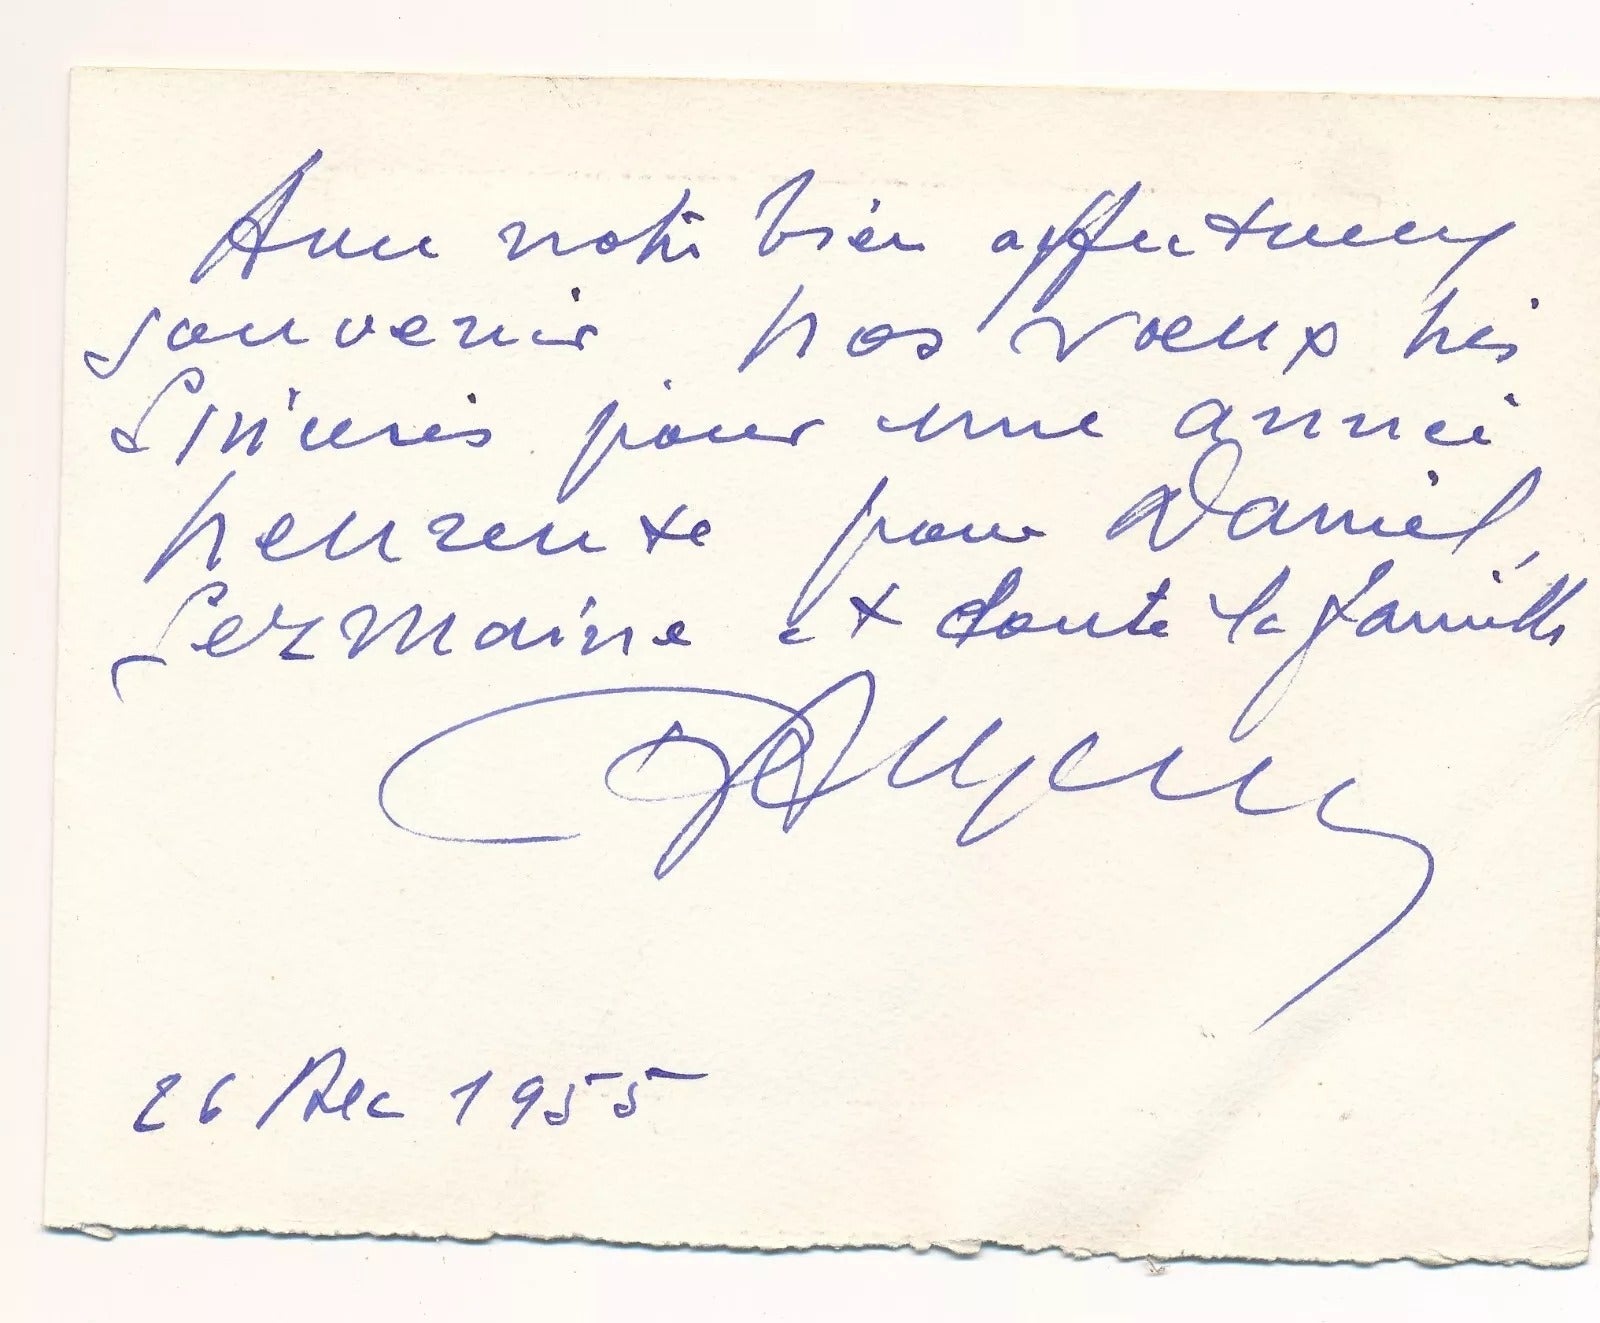 Avec notre bien affectueux
souvenir nos voeux très
sincères pour une année
heureuse pour Daniel,
Germaine et toute la famille
26 Dec 1955